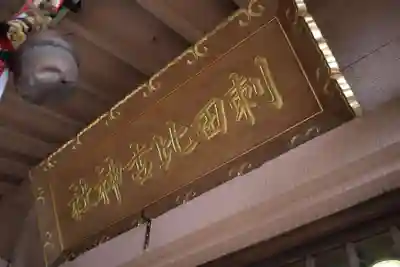 刺田比古神社